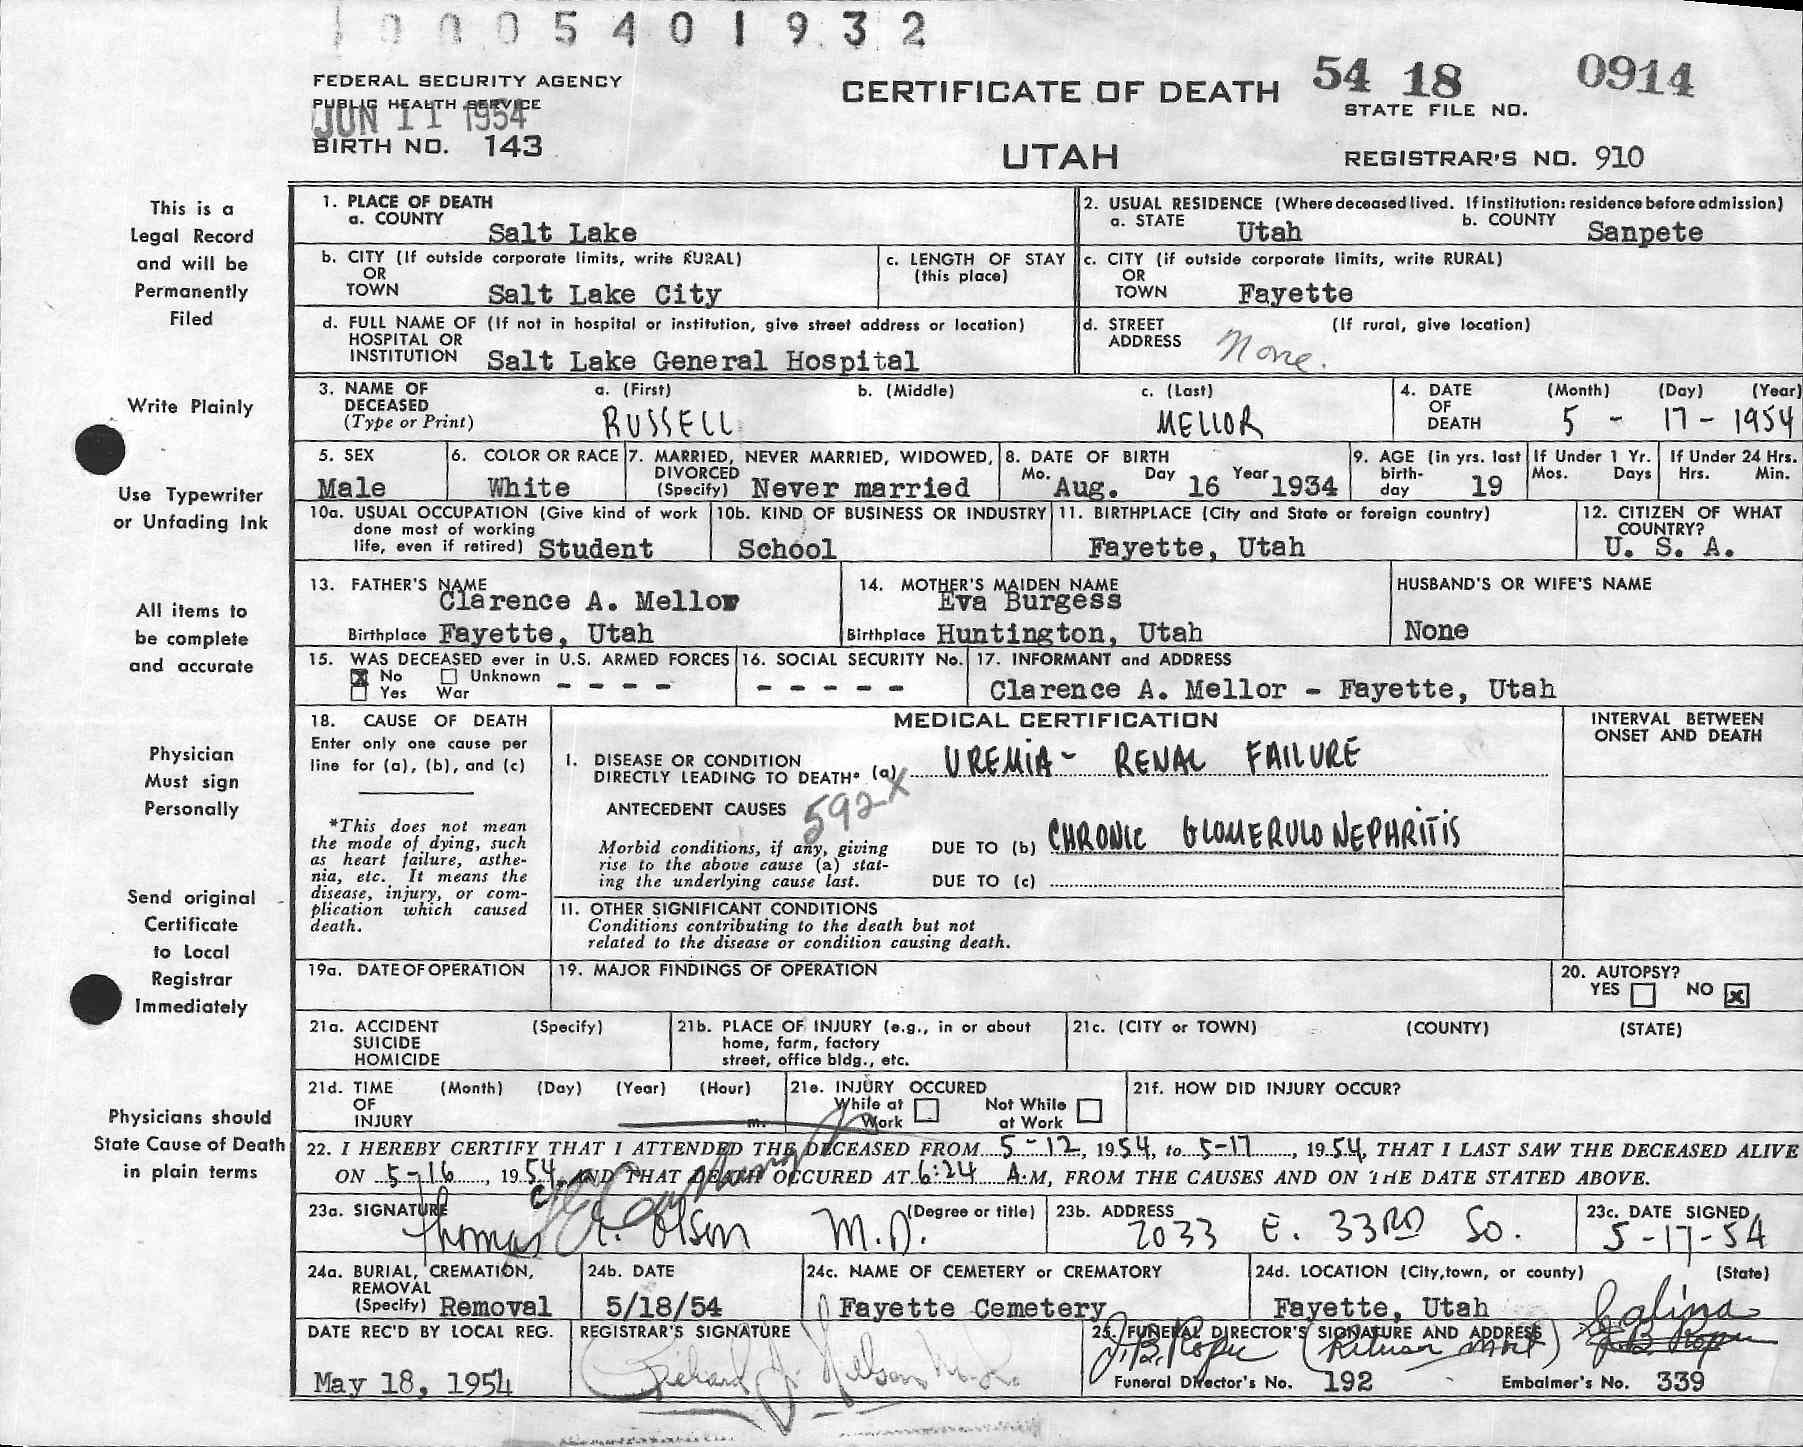 1 0 0 0 5 4 0 1 9 3 2
FEDERAL SECURITY AGENCY
PUBLIC HEALTH SERVICE
JUN 11 1954
BIRTH NO. 143
CERTIFICATE OF DEATH
UTAH
54 18 0914
STATE FILE NO.
REGISTRAR'S NO. 910
This is a
Legal Record
and will be
Permanently
Filed
Write Plainly
Use Typewriter
or Unfading Ink
All items to
be complete
and accurate
Physician
Must sign
Personally
Send original
Certificate
to Local
Registrar
Immediately
Physicians should
State Cause of Death
in plain terms
1. PLACE OF DEATH
a. COUNTY Salt Lake
2. USUAL RESIDENCE (Where deceased lived. If institution: residence before admission)
a. STATE Utah b. COUNTY Sanpete
b. CITY (If outside corporate limits, write RURAL)
OR
TOWN Salt Lake City
c. LENGTH OF STAY
(this place)
c. CITY (if outside corporate limits, write RURAL)
OR
TOWN Fayette
d. FULL NAME OF (If not in hospital or institution, give street address or location)
HOSPITAL OR
INSTITUTION Salt Lake General Hospital
d. STREET (If rural, give location)
ADDRESS None.
3. NAME OF a. (First) b. (Middle) c. (Last)
DECEASED
(Type or Print) RUSSELL MELLOR
4. DATE (Month) (Day) (Year)
OF
DEATH 5 - 17 - 1954
5. SEX
Male
6. COLOR OR RACE
White
7. MARRIED, NEVER MARRIED, WIDOWED,
DIVORCED
(Specify) Never married
8. DATE OF BIRTH
Mo. Aug. Day 16 Year 1934
9. AGE (in yrs. last
birth-
day 19
If Under 1 Yr.
Mos. Days
If Under 24 Hrs.
Hrs. Min.
10a. USUAL OCCUPATION (Give kind of work
done most of working
life, even if retired) Student
10b. KIND OF BUSINESS OR INDUSTRY
School
11. BIRTHPLACE (City and State or foreign country)
Fayette, Utah
12. CITIZEN OF WHAT
COUNTRY?
U. S. A.
13. FATHER'S NAME
Clarence A. Mellor
Birthplace Fayette, Utah
14. MOTHER'S MAIDEN NAME
Eva Burgess
Birthplace Huntington, Utah
HUSBAND'S OR WIFE'S NAME
None
15. WAS DECEASED ever in U.S. ARMED FORCES
No Unknown
Yes War - - - -
16. SOCIAL SECURITY No.
- - - - -
17. INFORMANT and ADDRESS
Clarence A. Mellor - Fayette, Utah
18. CAUSE OF DEATH
Enter only one cause per
line for (a), (b), and (c)
*This does not mean
the mode of dying, such
as heart failure, asthe-
nia, etc. It means the
disease, injury, or com-
plication which caused
death.
MEDICAL CERTIFICATION
INTERVAL BETWEEN
ONSET AND DEATH
I. DISEASE OR CONDITION
DIRECTLY LEADING TO DEATH* (a) UREMIA - RENAL FAILURE
ANTECEDENT CAUSES 592X
Morbid conditions, if any, giving
rise to the above cause (a) stat-
ing the underlying cause last.
DUE TO (b) CHRONIC GLOMERULONEPHRITIS
DUE TO (c)
II. OTHER SIGNIFICANT CONDITIONS
Conditions contributing to the death but not
related to the disease or condition causing death.
19a. DATE OF OPERATION
19. MAJOR FINDINGS OF OPERATION
20. AUTOPSY?
YES NO X
21a. ACCIDENT (Specify)
SUICIDE
HOMICIDE
21b. PLACE OF INJURY (e.g., in or about
home, farm, factory
street, office bldg., etc.
21c. (CITY or TOWN) (COUNTY) (STATE)
21d. TIME (Month) (Day) (Year) (Hour)
OF
INJURY m.
21e. INJURY OCCURED
While at Not While
Work at Work
21f. HOW DID INJURY OCCUR?
22. I HEREBY CERTIFY THAT I ATTENDED THE DECEASED FROM 5-12, 1954, to 5-17, 1954, THAT I LAST SAW THE DECEASED ALIVE
ON 5-16, 1954, AND THAT DEATH OCCURED AT 6:24 A.M, FROM THE CAUSES AND ON THE DATE STATED ABOVE.
23a. SIGNATURE (Degree or title)
Thomas A. Olson M.D.
23b. ADDRESS
2033 E. 33RD SO.
23c. DATE SIGNED
5-17-54
24a. BURIAL, CREMATION,
REMOVAL
(Specify) Removal
24b. DATE
5/18/54
24c. NAME OF CEMETERY or CREMATORY
Fayette Cemetery
24d. LOCATION (City, town, or county) (State)
Fayette, Utah
Salina
DATE REC'D BY LOCAL REG.
May 18, 1954
REGISTRAR'S SIGNATURE
25. FUNERAL DIRECTOR'S SIGNATURE AND ADDRESS
Funeral Director's No. 192 Embalmer's No. 339